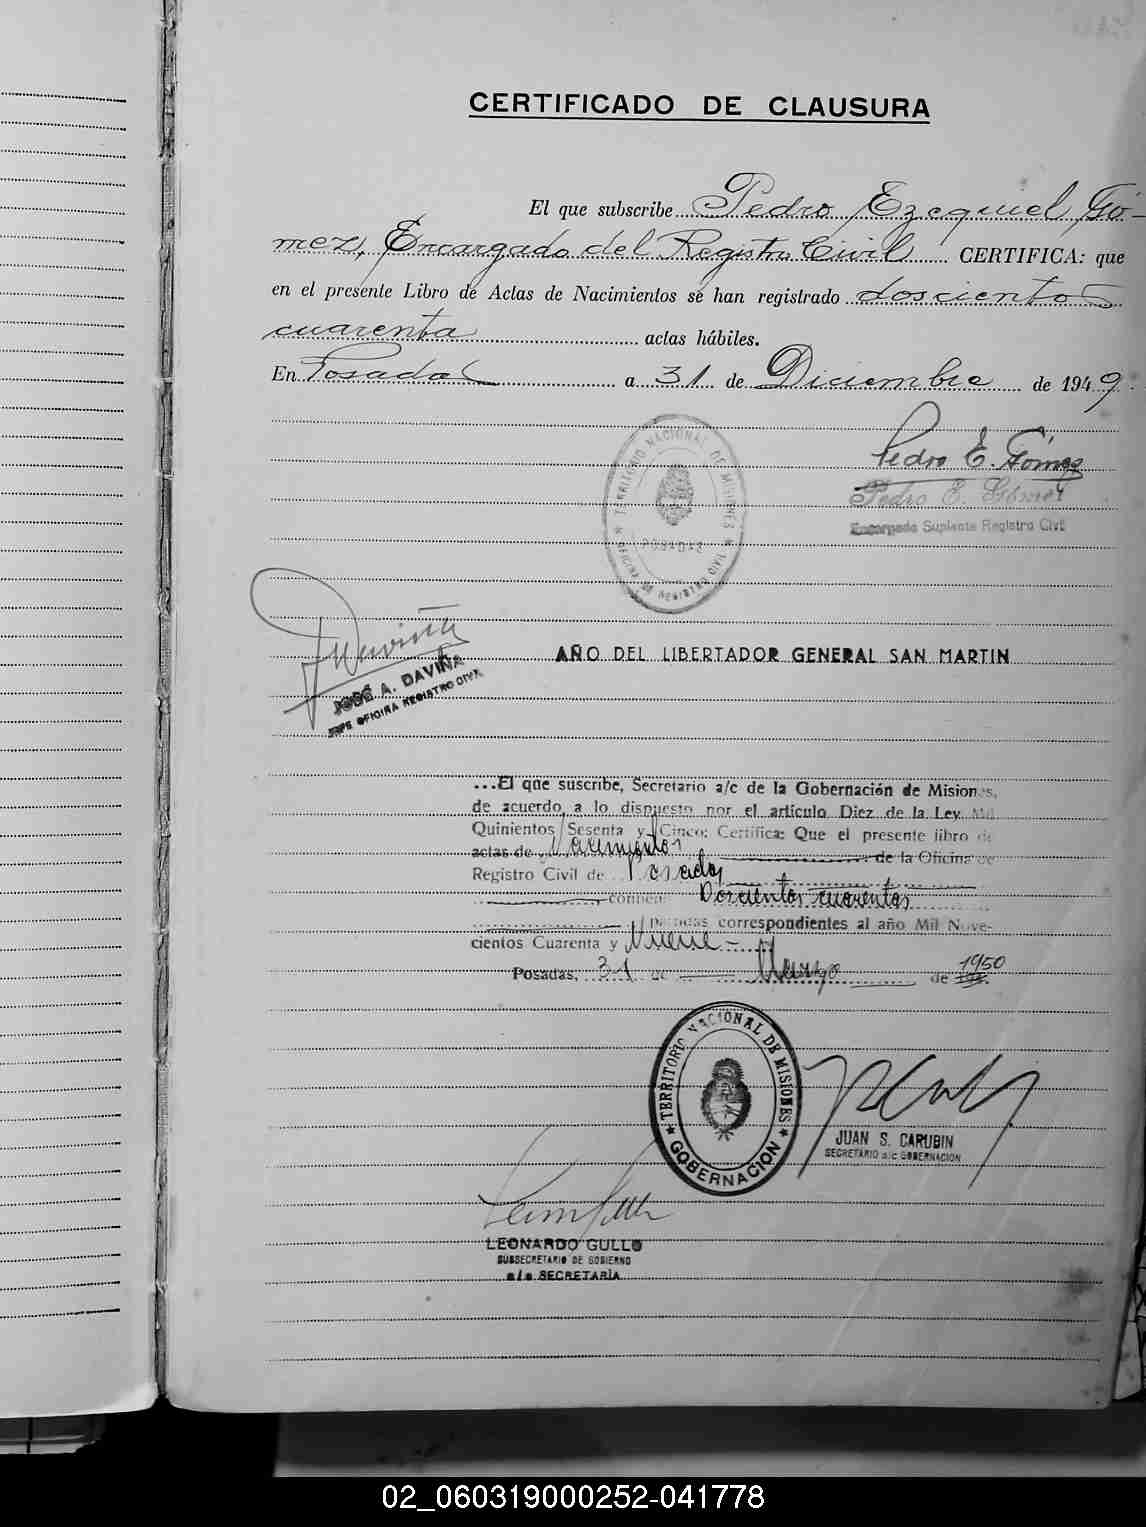 CERTIFICADO DE CLAUSURA
El que subscribe Pedro Ezequiel Gó-
mez, Encargado del Registro Civil CERTIFICA: que
en el presente Libro de Actas de Nacimientos se han registrado doscientos
cuarenta actas hábiles.
En Posadas a 31 de Diciembre de 1949.
Pedro E. Gómez
Pedro E. Gómez
Encargado Suplente Registro Civil
TERRITORIO NACIONAL DE MISIONES
POSADAS
OFICINA DE REGISTRO CIVIL
JOSÉ A. DAVIÑA
JEFE OFICINA REGISTRO CIVIL
AÑO DEL LIBERTADOR GENERAL SAN MARTIN
...El que suscribe, Secretario a/c de la Gobernación de Misiones,
de acuerdo a lo dispuesto por el artículo Diez de la Ley Mil
Quinientos Sesenta y Cinco: Certifica: Que el presente libro de
actas de Nacimientos de la Oficina de
Registro Civil de Posadas
contiene Doscientos cuarentas
partidas correspondientes al año Mil Nove-
cientos Cuarenta y Nueve
Posadas, 31 de Marzo de 1950
TERRITORIO NACIONAL DE MISIONES
GOBERNACION
JUAN S. CARUBIN
SECRETARIO a/c GOBERNACION
LEONARDO GULLO
SUBSECRETARIO DE GOBIERNO
a/c SECRETARÍA
02_060319000252-041778